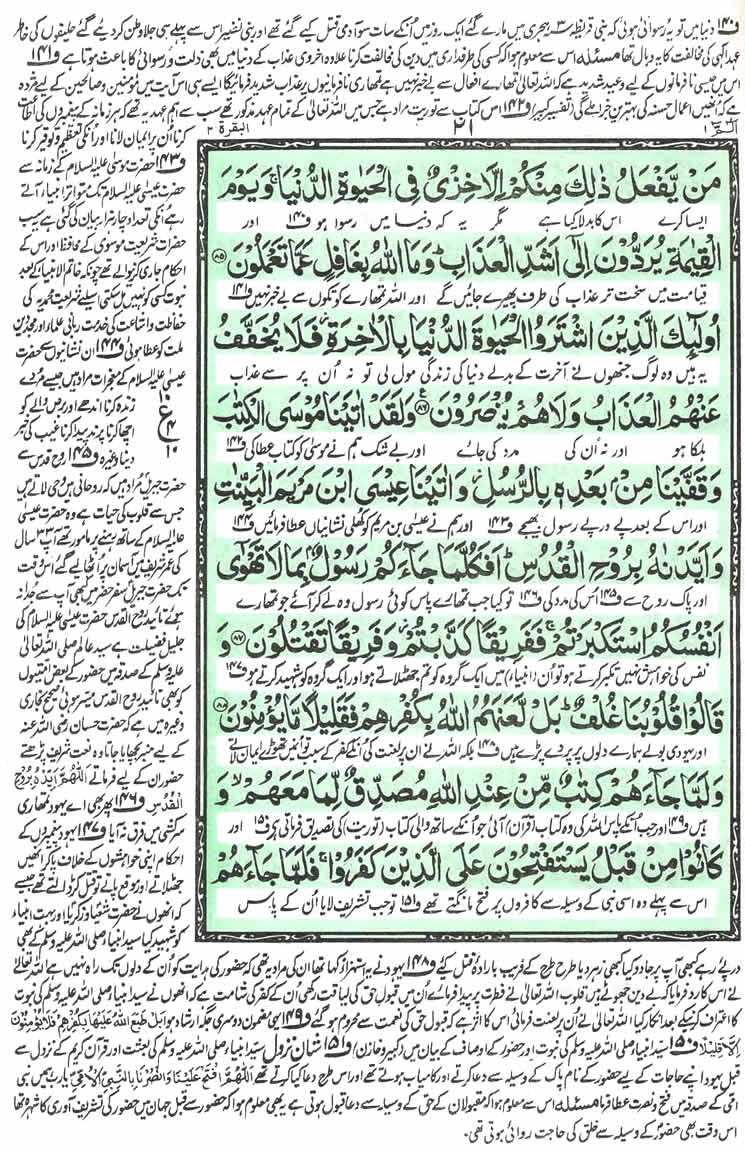 ف۱۴۰ دنیا میں تو یہ رسوائی ہوئی کہ بنی قریظہ ۳ ہجری میں مارے گئے ایک روز میں انکے سات سو آدمی قتل کیے گئے تھے اور بنی نضیر اس سے پہلے ہی جلا وطن کر دیے گئے حلیفوں کی خاطر
عہد الٰہی کی مخالفت کا یہ وبال تھا مسئلہ اس سے معلوم ہوا کہ کسی کی طرفداری میں دین کی مخالفت کرنا علاوہ اخروی عذاب کے دنیا میں بھی ذلت و رسوائی کا باعث ہوتا ہے ف۱۴۱
اس میں جیسی نافرمانوں کے لیے وعید شدید ہے کہ اللہ تعالیٰ تمھارے افعال سے بے خبر نہیں ہے تمھاری نافرمانیوں پر عذاب شدید فرمائیگا ایسے ہی اس آیت میں مؤمنین و صالحین کے لیے مژدہ
ہے کہ انھیں اعمال حسنہ کی بہترین جزا ملے گی (تفسیر کبیر) ف۱۴۲ اس کتاب سے توریت مراد ہے جس میں اللہ تعالیٰ کے تمام عہد مذکور تھے سب سے اہم عہد یہ تھے کہ ہر زمانہ کے پیغمبروں کی اطاعت
الٓمّٓ ۱
۲۱
البقرۃ ۲
مَنْ يَّفْعَلُ ذٰلِكَ مِنْكُمْ اِلَّا خِزْىٌ فِى الْحَيٰوةِ الدُّنْيَا ۚ وَيَوْمَ
ایسا کرے اس کا بدلا کیا ہے مگر یہ کہ دنیا میں رسوا ہو ف۱۴۰ اور
الْقِيٰمَةِ يُرَدُّوْنَ اِلٰٓى اَشَدِّ الْعَذَابِ ؕ وَمَا اللّٰهُ بِغَافِلٍ عَمَّا تَعْمَلُوْنَ ۸۵
قیامت میں سخت تر عذاب کی طرف پھیرے جائیں گے اور اللہ تمھارے کوتکوں سے بے خبر نہیں ف۱۴۱
اُولٰٓئِكَ الَّذِيْنَ اشْتَرَوُا الْحَيٰوةَ الدُّنْيَا بِالْاٰخِرَةِ ؗ فَلَا يُخَفَّفُ
یہ ہیں وہ لوگ جنھوں نے آخرت کے بدلے دنیا کی زندگی مول لی تو نہ اُن پر سے عذاب
عَنْهُمُ الْعَذَابُ وَلَا هُمْ يُنْصَرُوْنَ ۸۶ وَلَقَدْ اٰتَيْنَا مُوْسَى الْكِتٰبَ
ہلکا ہو اور نہ اُن کی مدد کی جائے اور بے شک ہم نے موسیٰ کو کتاب عطا کی ف۱۴۲
وَقَفَّيْنَا مِنْۢ بَعْدِهٖ بِالرُّسُلِ ؗ وَاٰتَيْنَا عِيْسَى ابْنَ مَرْيَمَ الْبَيِّنٰتِ
اور اس کے بعد پے در پے رسول بھیجے ف۱۴۳ اور ہم نے عیسیٰ بن مریم کو کھلی نشانیاں عطا فرمائیں ف۱۴۴
وَاَيَّدْنٰهُ بِرُوْحِ الْقُدُسِ ؕ اَفَكُلَّمَا جَآءَكُمْ رَسُوْلٌۢ بِمَا لَا تَهْوٰٓى
اور پاک روح سے ف۱۴۵ اس کی مدد کی ف۱۴۶ تو کیا جب تمھارے پاس کوئی رسول وہ لے کر آئے جو تمھارے
اَنْفُسُكُمُ اسْتَكْبَرْتُمْ ۚ فَفَرِيْقًا كَذَّبْتُمْ ؗ وَفَرِيْقًا تَقْتُلُوْنَ ۸۷ وَ
نفس کی خواہش نہیں تکبر کرتے ہو تو اُن (انبیاء) میں ایک گروہ کو تم جھٹلاتے ہو اور ایک گروہ کو شہید کرتے ہو ف۱۴۷
قَالُوْا قُلُوْبُنَا غُلْفٌ ؕ بَلْ لَّعَنَهُمُ اللّٰهُ بِكُفْرِهِمْ فَقَلِيْلًا مَّا يُؤْمِنُوْنَ ۸۸
اور یہودی بولے ہمارے دلوں پر پردے پڑے ہیں ف۱۴۸ بلکہ اللہ نے ان پر لعنت کی اُنکے کفر کے سبب تو انمیں تھوڑے ایمان لاتے
وَلَمَّا جَآءَهُمْ كِتٰبٌ مِّنْ عِنْدِ اللّٰهِ مُصَدِّقٌ لِّمَا مَعَهُمْ ۙ وَ
ہیں ف۱۴۹ اور جب اُنکے پاس اللہ کی وہ کتاب (قرآن) آئی جو اُنکے ساتھ والی کتاب (توریت) کی تصدیق فرماتی ہے ف۱۵۰ اور
كَانُوْا مِنْ قَبْلُ يَسْتَفْتِحُوْنَ عَلَى الَّذِيْنَ كَفَرُوْا ۚ فَلَمَّا جَآءَهُمْ
اس سے پہلے وہ اسی نبی کے وسیلہ سے کافروں پر فتح مانگتے تھے ف۱۵۱ تو جب تشریف لایا اُن کے پاس
کرنا اُن پر ایمان لانا اور انکی تعظیم و توقیر کرنا
ف۱۴۳ حضرت موسیٰ علیہ السلام کے زمانہ سے
حضرت عیسیٰ علیہ السلام تک متواتر انبیاء آتے
رہے انکی تعداد چار ہزار بیان کی گئی ہے یہ سب
حضرات شریعت موسوی کے محافظ اور اس کے
احکام جاری کرنیوالے تھے چونکہ خاتم الانبیاء کے بعد
نبوت کسی کو نہیں مل سکتی اسلیے شریعت محمدیہ کی
حفاظت و اشاعت کی خدمت ربانی علماء اور مجددین
ملت کو عطا ہوئی ف۱۴۴ ان نشانیوں سے حضرت
عیسیٰ علیہ السلام کے معجزات مراد ہیں جیسے مردے
زندہ کرنا اندھے اور برص والے کو
اچھا کرنا پرند پیدا کرنا غیب کی خبر
دینا وغیرہ ف۱۴۵ روح قدس سے
۱۰
ع
۴
۱۰
حضرت جبریل مراد ہیں کہ روحانی ہیں وحی لاتے ہیں
جس سے قلوب کی حیات ہے وہ حضرت عیسیٰ
علیہ السلام کے ساتھ رہنے پر مامور تھے آپ ۳۳ سال
کی عمر شریف میں آسمان پر اُٹھا لیے گئے اس وقت
تک حضرت جبریل سفر حضر میں کبھی آپ سے جدا نہ
ہوئے تائید روح القدس حضرت عیسیٰ علیہ السلام کی
جلیل فضیلت ہے سید عالم صلی اللہ تعالیٰ
علیہ وسلم کے صدقہ میں حضور کے بعض امتیوں
کو بھی تائید روح القدس میسر ہوئی صحیح بخاری
وغیرہ میں ہے کہ حضرت حسان رضی اللہ عنہ
کے لیے منبر بچھایا جاتا وہ نعت شریف پڑھتے
حضور ان کے لیے فرماتے اَللّٰهُمَّ اَيِّدْهُ بِرُوْحِ
الْقُدُسِ ف۱۴۶ پھر بھی اے یہود تمھاری
سرکشی میں فرق نہ آیا ف۱۴۷ یہود پیغمبروں کے
احکام اپنی خواہشوں کے خلاف پا کر انھیں
جھٹلاتے اور موقع پاتے تو قتل کر ڈالتے تھے جیسے
کہ انھوں نے حضرت شعیا و زکریا اور بہت انبیاء
کو شہید کیا سید انبیاء صلی اللہ علیہ وسلم کے بھی
درپے رہے کبھی آپ پر جادو کیا کبھی زہر دیا طرح طرح کے فریب بارادۂ قتل کیے ف۱۴۸ یہود نے یہ استہزاءً کہا تھا ان کی مراد یہ تھی کہ حضور کی ہدایت کو اُن کے دلوں تک راہ نہیں ہے اللہ تعالیٰ
نے اس کا رد فرمایا کہ بے دین جھوٹے ہیں قلوب اللہ تعالیٰ نے فطرت پر پیدا فرمائے اُن میں قبول حق کی لیاقت رکھی اُن کے کفر کی شامت ہے کہ انھوں نے سید انبیاء صلی اللہ علیہ وسلم کی نبوت
کا اعتراف کرنیکے بعد انکار کیا اللہ تعالیٰ نے اُن پر لعنت فرمائی اُس کا اثر ہے کہ قبول حق کی نعمت سے محروم ہو گئے ف۱۴۹ یہی مضمون دوسری جگہ ارشاد ہوا بَلْ طَبَعَ اللّٰهُ عَلَيْهَا بِكُفْرِهِمْ فَلَا يُؤْمِنُوْنَ
اِلَّا قَلِيْلًا ف۱۵۰ سید انبیاء صلی اللہ علیہ وسلم کی نبوت اور حضور کے اوصاف کے بیان میں (کبیر و خازن) ف۱۵۱ شان نزول سید انبیاء صلی اللہ علیہ وسلم کی بعثت اور قرآن کریم کے نزول سے
قبل یہود اپنے حاجات کے لیے حضور کے نام پاک کے وسیلہ سے دعا کرتے اور کامیاب ہوتے تھے اور اس طرح دعا کیا کرتے تھے اَللّٰهُمَّ افْتَحْ عَلَيْنَا وَانْصُرْنَا بِالنَّبِيِّ الْاُمِّيِّ یارب ہمیں نبی
امی کے صدقہ میں فتح و نصرت عطا فرما مسئلہ اس سے معلوم ہوا کہ مقبولان حق کے وسیلہ سے دعا قبول ہوتی ہے یہ بھی معلوم ہوا کہ حضور سے قبل جہان میں حضور کی تشریف آوری کا شہرہ تھا
اس وقت بھی حضور کے وسیلہ سے خلق کی حاجت روائی ہوتی تھی۔